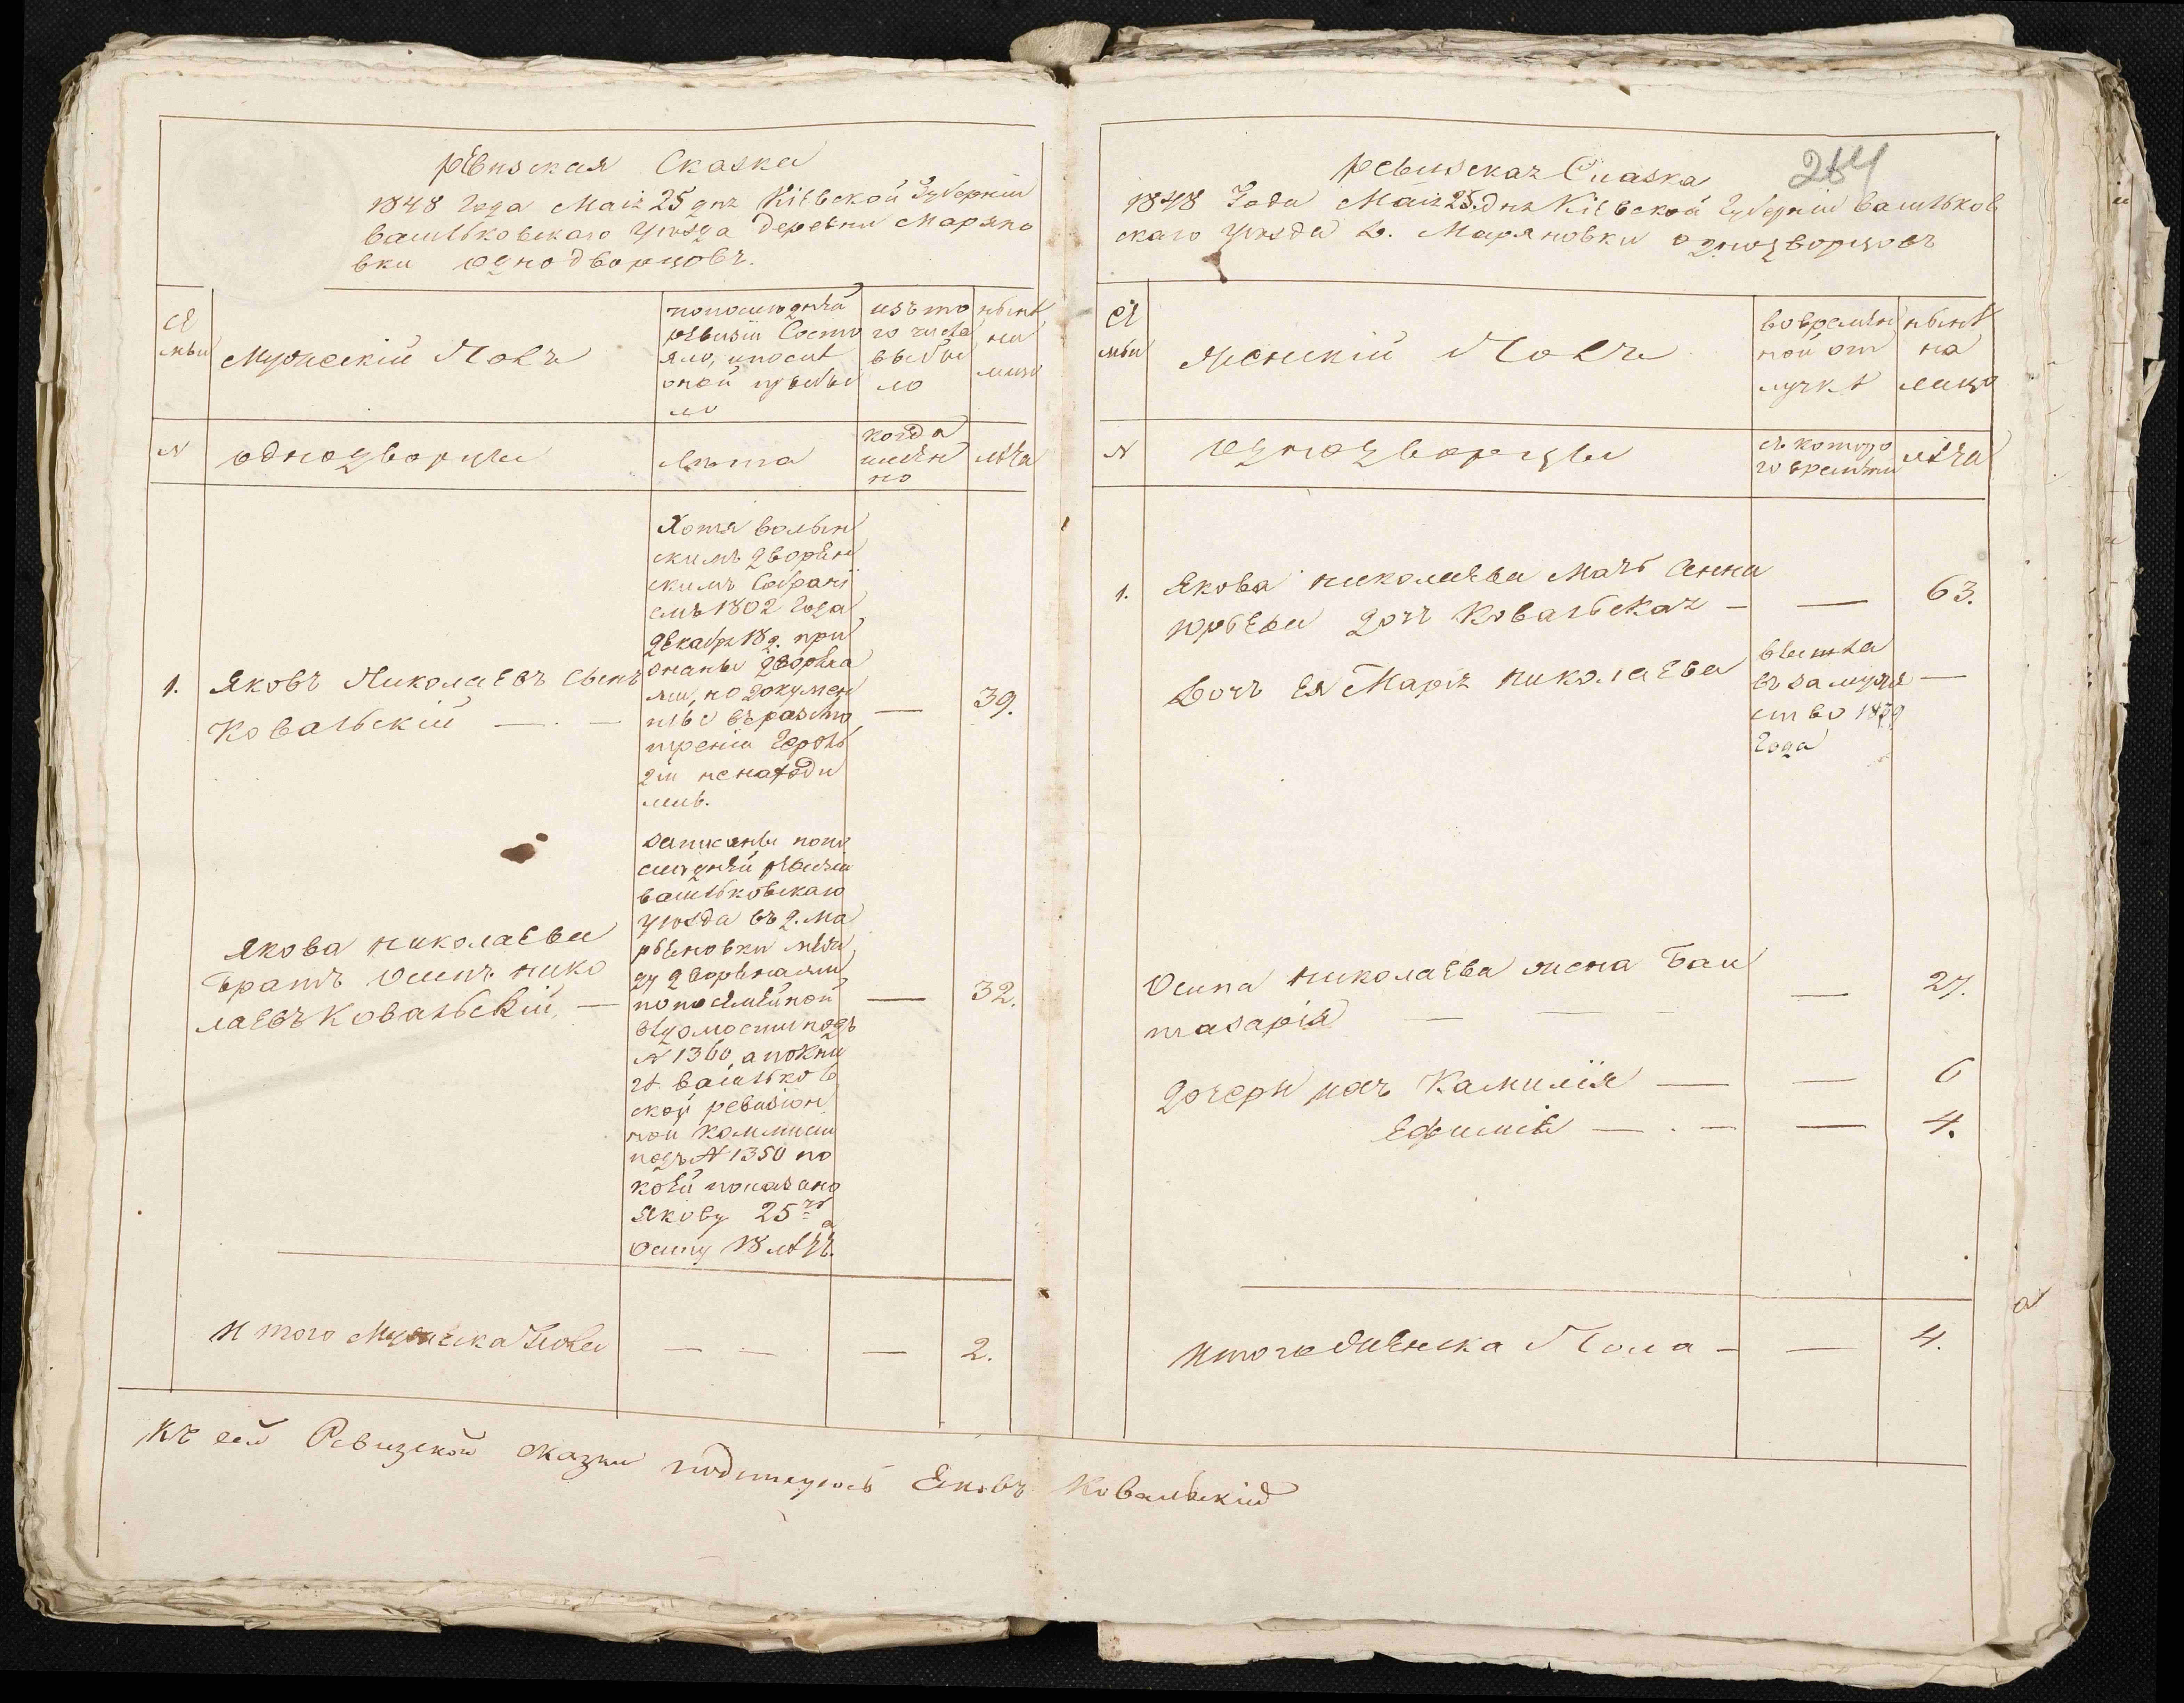 Ревизская Сказка
1848 года Маія 25 дня Кіевской Губерніи
Васильковскаго уѣзда деревни Маряно
вки однодворцовъ.
Се
мьи
Мужескій Полъ
по последнѣй
ревизіи Состо
яло, и после
оной прибы
ло
изъ то
го числа
выбы
ло
нынѣ
на
лицо
N
однодворцы
лѣта
когда
имен
но
лѣта
1.
Яковъ Николаевъ сынъ
Ковальскій — —
Хотя волын
скимъ дворян
скимъ Собрані
емъ 1802 года
декабря 18 д. при
знаны дворяна
ми, но документы
въ разсмо
треніи Герольдіи
не находи
лись.
—
39.
Якова николаева
братъ Осипъ нико
лаевъ Ковальскій, —
записаны по по
следнѣй ревизіи
васильковскаго
уѣзда въ д. Ма
рьяновки меж
ду дворянами
по посемейной
вѣдомости подъ
N 1360, а по кни
гѣ Васильков
ской ревизіон
ной коммисіи
подъ N 1350 по
коей показано
Якову 25ть а
Осипу 18 лѣтъ.
—
32.
Итого Мужеска Пола
— —
—
2.
284
Ревизская Сказка
1848 Года Маія 25 дня Кіевской Губерніи Васильков
скаго уѣзда д. Маряновки однодворцовъ
Се
мьи
Женскій Полъ
во времен
ной от
лучкѣ
нынѣ
на
лицо
N
однодворцы
съ которо
го времѣни
лѣта
1.
Якова николаева мать Анна
Юрьева дочь Ковальская —
—
63.
Дочь ея Марія николаева
вышла
въ замуже
ство
года
—
Осипа николаева жена Бал
тазарія — —
—
27.
дочери ихъ Камилія —
—
6
Ефимія — . —
—
4.
Итого Женска Пола —
—
4.
Къ сей Ревизской сказки подписуюсь Яковъ Ковальскій